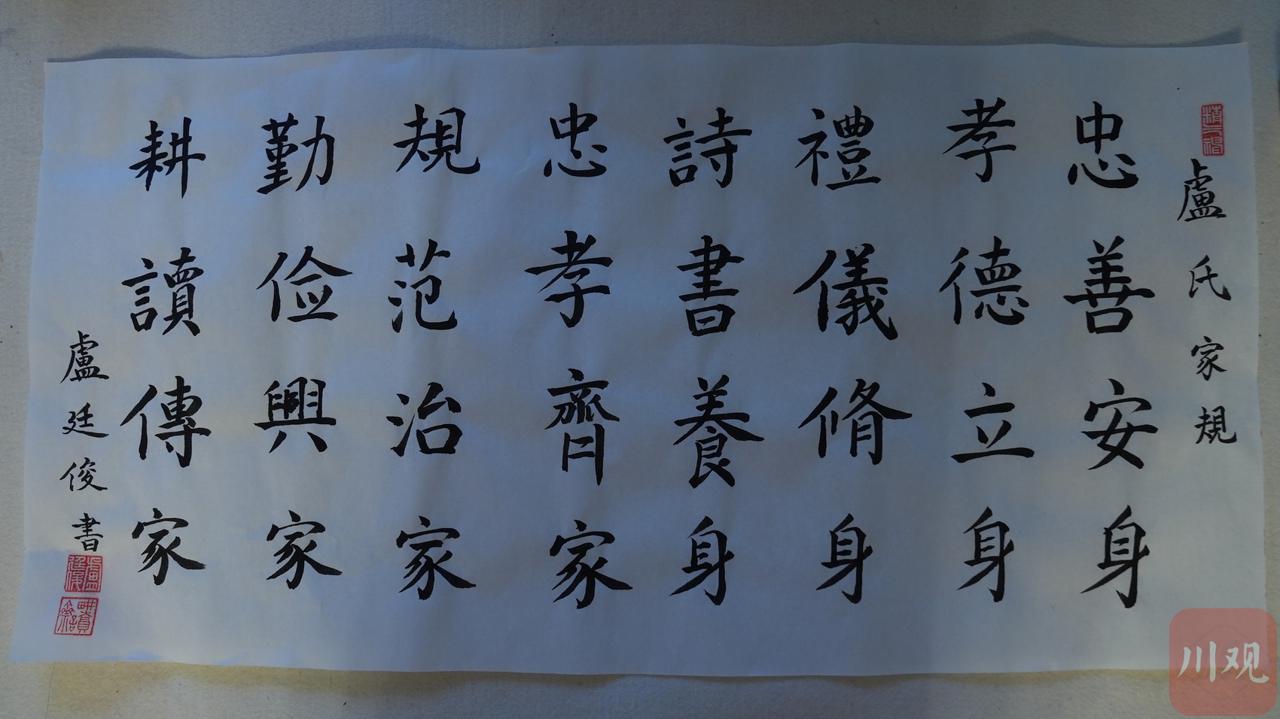 盧氏家規
忠善安身
孝德立身
禮儀脩身
詩書養身
忠孝齊家
規范治家
勤俭興家
耕讀傳家
盧廷俊書
川观